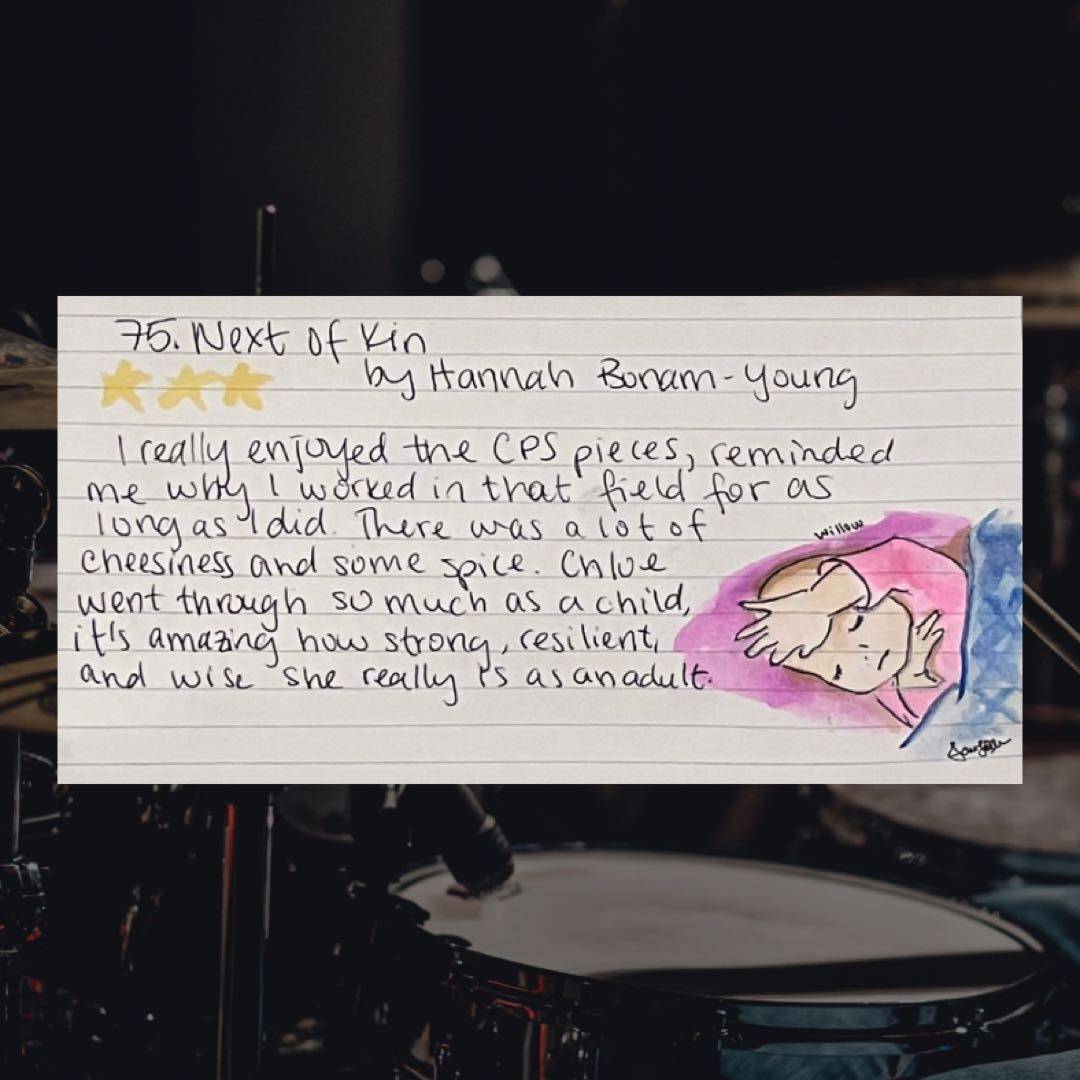 75. Next of Kin
by Hannah Bonam-Young
I really enjoyed the CPS pieces, reminded
me why I worked in that field for as
long as I did. There was a lot of
cheesiness and some spice. Chloe
went through so much as a child,
it's amazing how strong, resilient,
and wise she really is as an adult.
willow